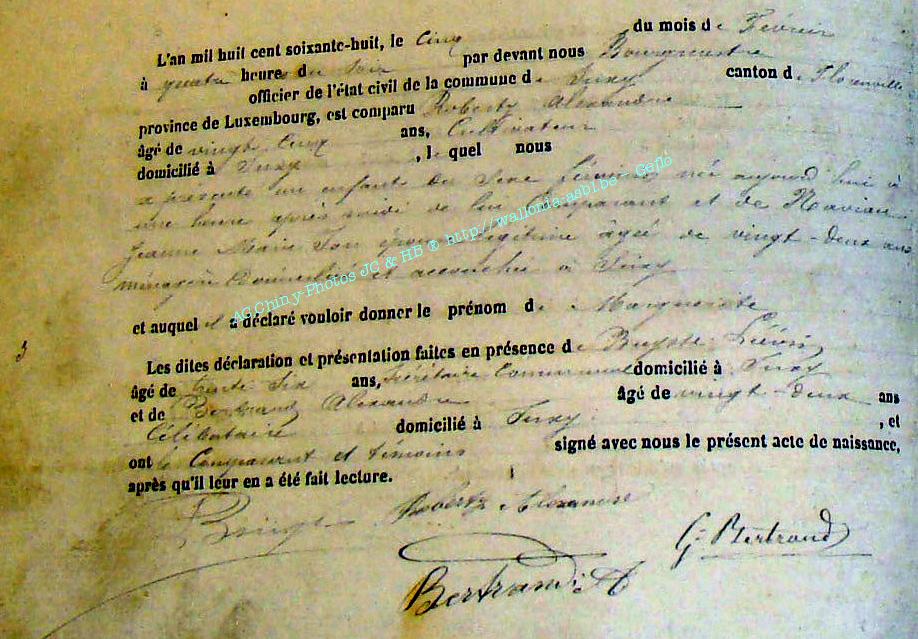 L'an mil huit cent soixante-huit, le Cinq du mois de Février
à quatre heure du Soir par devant nous Bourgmestre
officier de l'état civil de la commune de Suxy canton de Florenville
province de Luxembourg, est comparu Robertz Alexandre
âgé de vingt Cinq ans, Cultivateur
domicilié à Suxy, le quel nous
a présenté un enfant du Sexe féminin née aujourd'hui à
une heure après midi de lui Comparant et de Naviau
Jeanne Marie Son épouse légitime âgée de vingt-deux ans
ménagère Domiciliée et accouchée à Suxy
et auquel il a déclaré vouloir donner le prénom de Marguerite
Les dites déclaration et présentation faites en présence de
âgé de trente Six ans, Secrétaire Communal domicilié à Suxy
et de Bertrand Alexandre âgé de vingt-deux ans
Célibataire domicilié à Suxy, et
ont le Comparant et témoins signé avec nous le présent acte de naissance,
après qu'il leur en a été fait lecture.
Robertz Alexandre
G. Bertrand
Bertrand A
3
AG Chiny-Photos JC & HB ® http://wallonia-asbl.be - Geflo